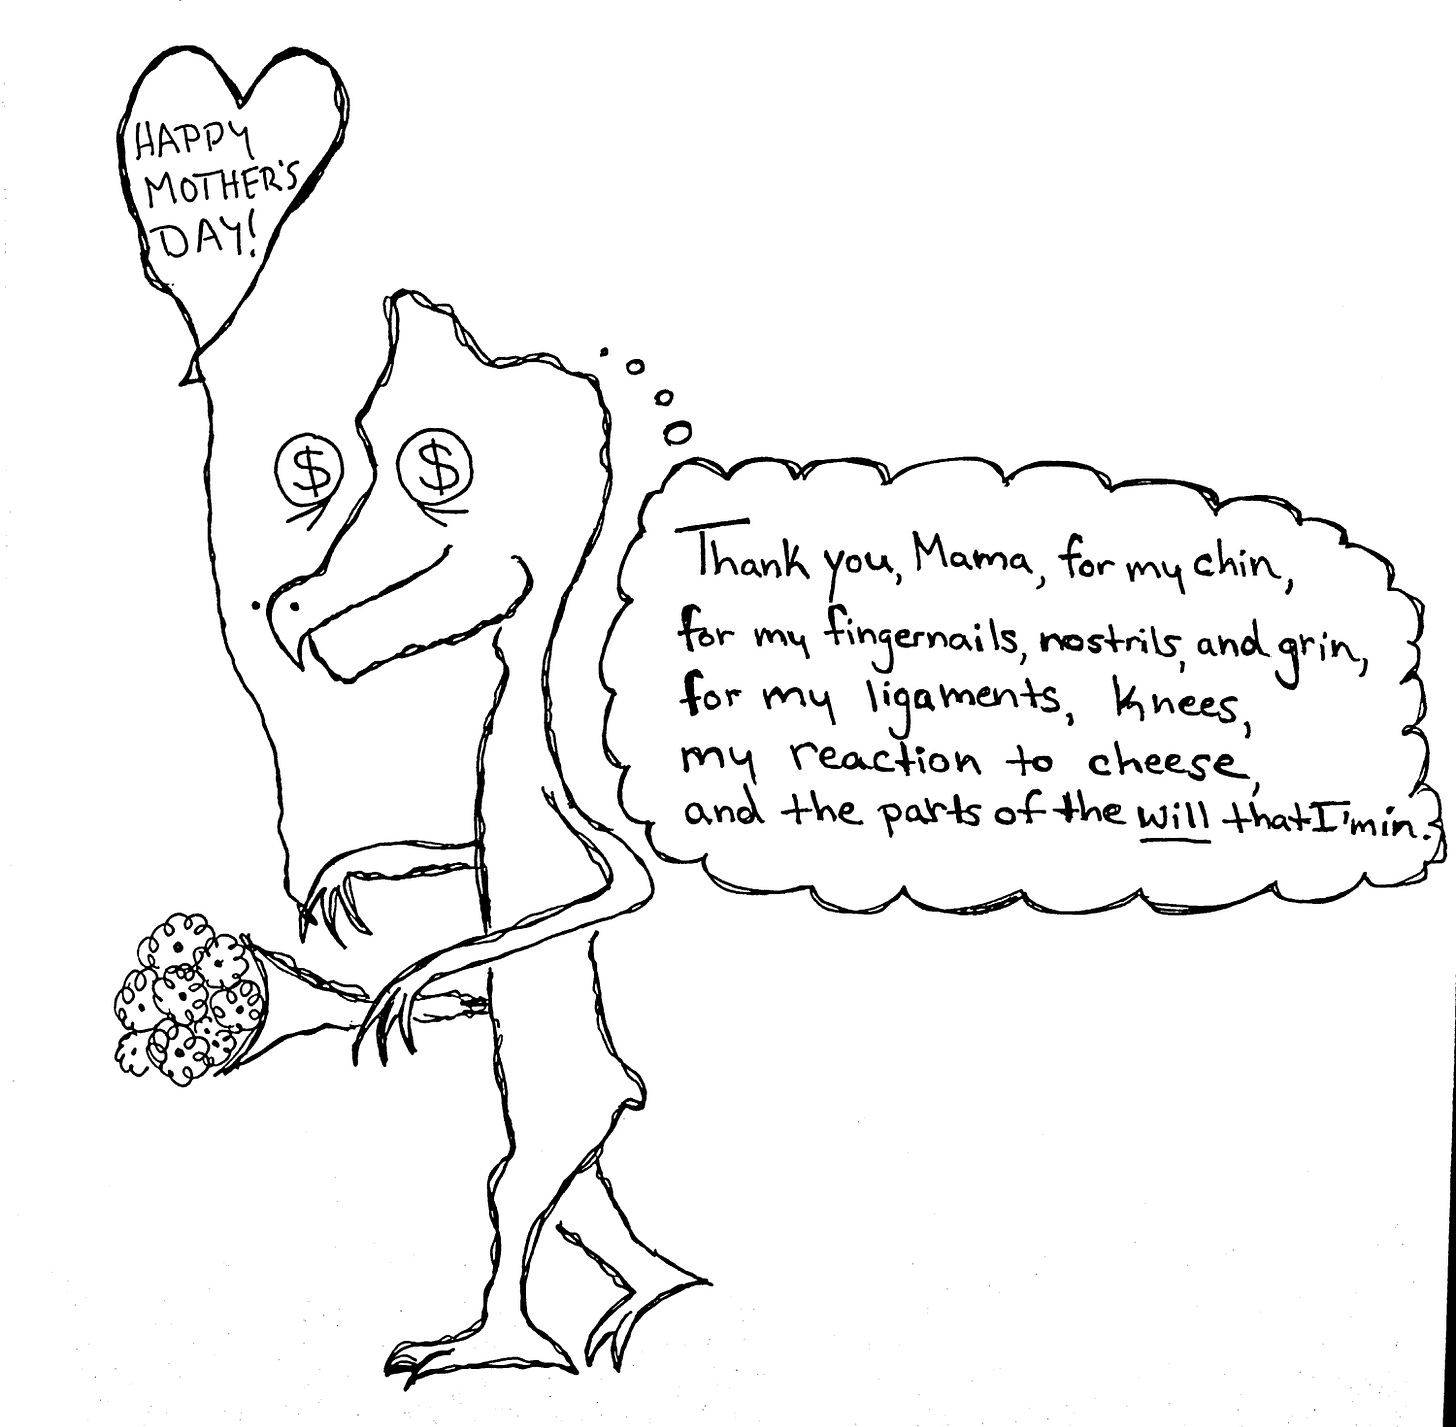 HAPPY
MOTHER'S
DAY!
$ $
Thank you, Mama, for my chin,
for my fingernails, nostrils, and grin,
for my ligaments, knees,
my reaction to cheese,
and the parts of the will that I'm in.